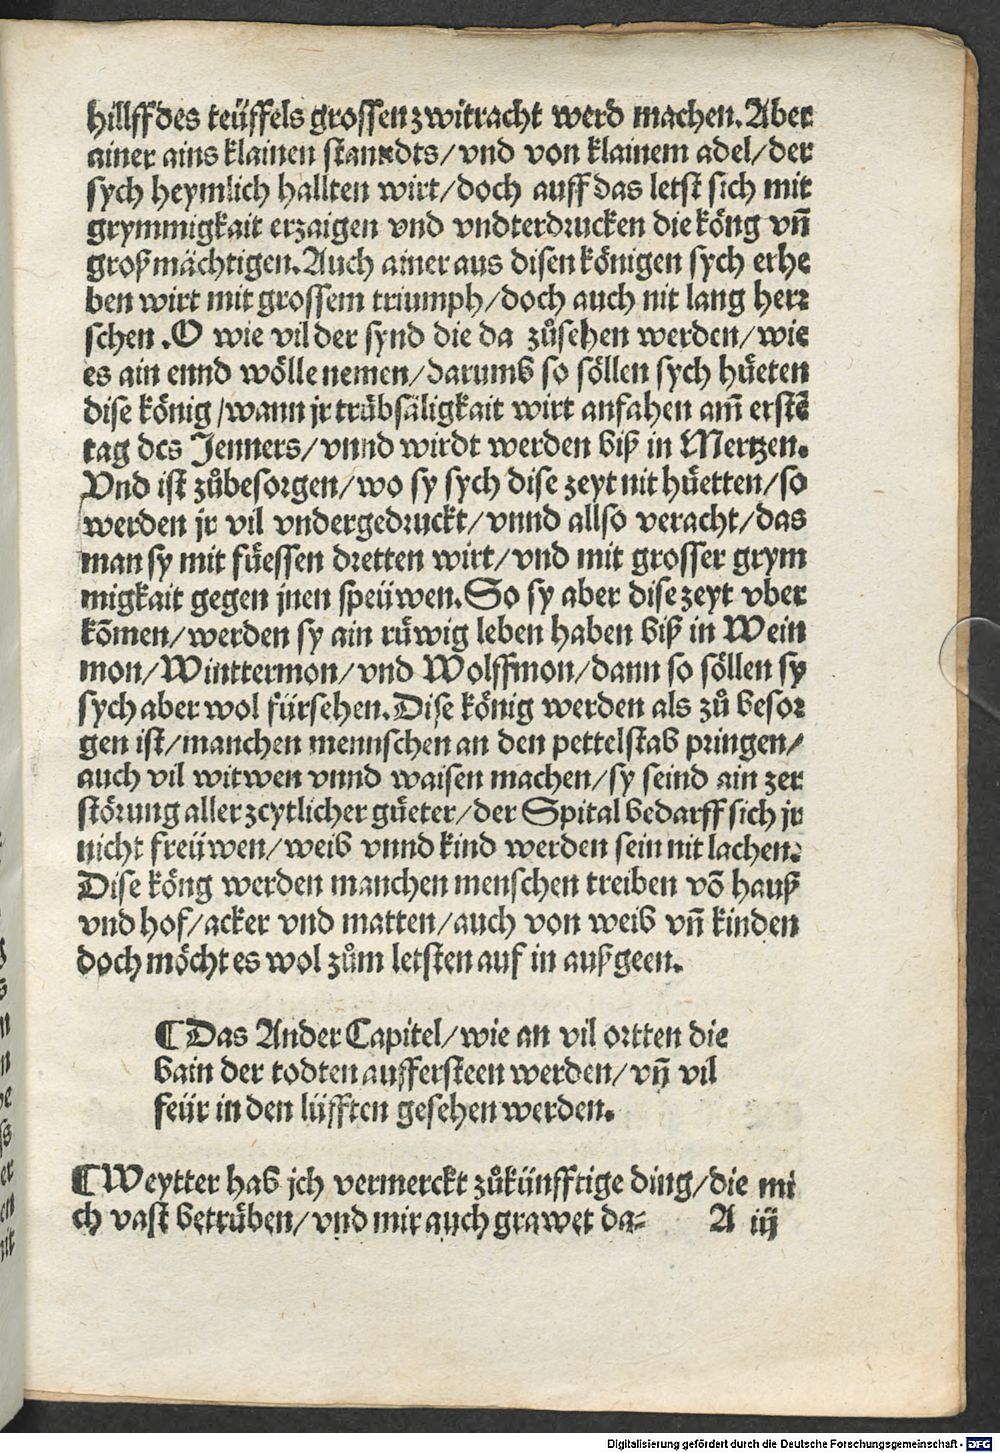 hillff des teüffels grossen zwitracht werd machen. Aber
ainer ains klainen stanndts/ vnd von klainem adel/ der
sych heymlich hallten wirt/ doch auff das letst sich mit
grymmigkait erzaigen vnd vndterdrucken die köng vñ
großmächtigen. Auch ainer aus disen königen sych erhe
ben wirt mit grossem triumph/ doch auch nit lang herr
schen. O wie vil der synd die da zůsehen werden/ wie
es ain ennd wölle nemen/ darumb so söllen sych hüeten
dise könig/ wann jr trübsäligkait wirt anfahen am̃ erstẽ
tag des Jenners/ vnnd wirdt werden biß in Mertzen.
Vnd ist zůbesorgen/ wo sy sych dise zeyt nit hüetten/ so
werden jr vil vndergedruckt/ vnnd allso veracht/ das
man sy mit füessen dretten wirt/ vnd mit grosser grym
migkait gegen jnen speüwen. So sy aber dise zeyt vber
kõmen/ werden sy ain rüwig leben haben biß in Wein
mon/ Winttermon/ vnd Wolffmon/ dann so söllen sy
sych aber wol fürsehen. Dise könig werden als zů besor
gen ist/ manchen mennschen an den pettelstab pringen/
auch vil witwen vnnd waisen machen/ sy seind ain zer
störung aller zeytlicher güeter/ der Spital bedarff sich jr
nicht freüwen/ weib vnnd kind werden sein nit lachen.
Dise köng werden manchen menschen treiben võ hauß
vnd hof/ acker vnd matten/ auch von weib vñ kinden
doch möcht es wol zům letsten auf in außgeen.
¶ Das Ander Capitel/ wie an vil ortten die
bain der todten auffersteen werden/ vñ vil
feür in den lüfften gesehen werden.
¶ Weytter hab jch vermerckt zůkünfftige ding/ die mi
ch vast betrüben/ vnd mir auch grawet da= A iij
Digitalisierung gefördert durch die Deutsche Forschungsgemeinschaft - DFG